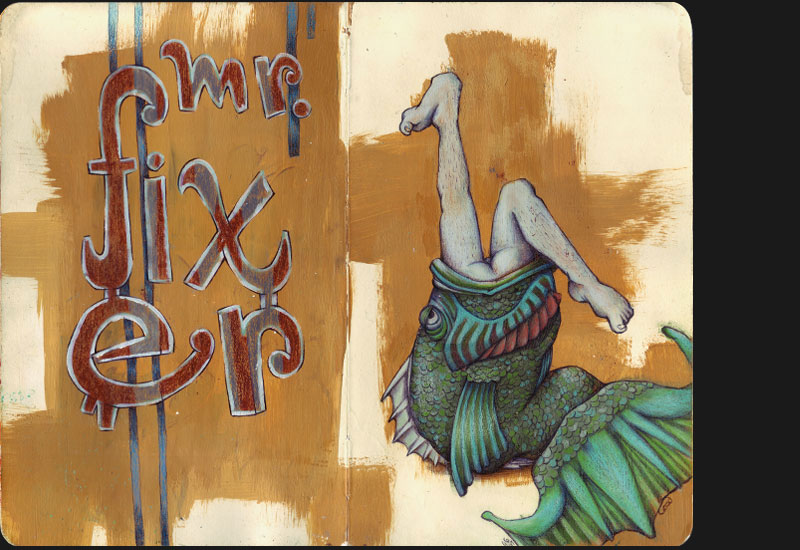 mr.
fix
er